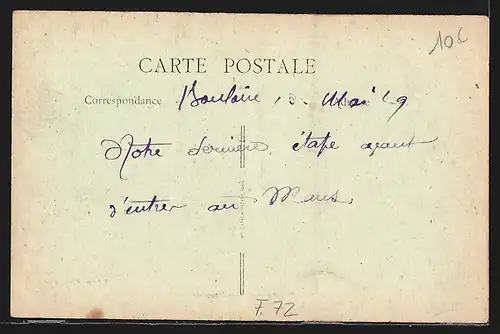 10c
CARTE POSTALE
Correspondance Bouloire, 3 Mai 29
Notre dernière étape avant
d'entrer au Mans
F.72